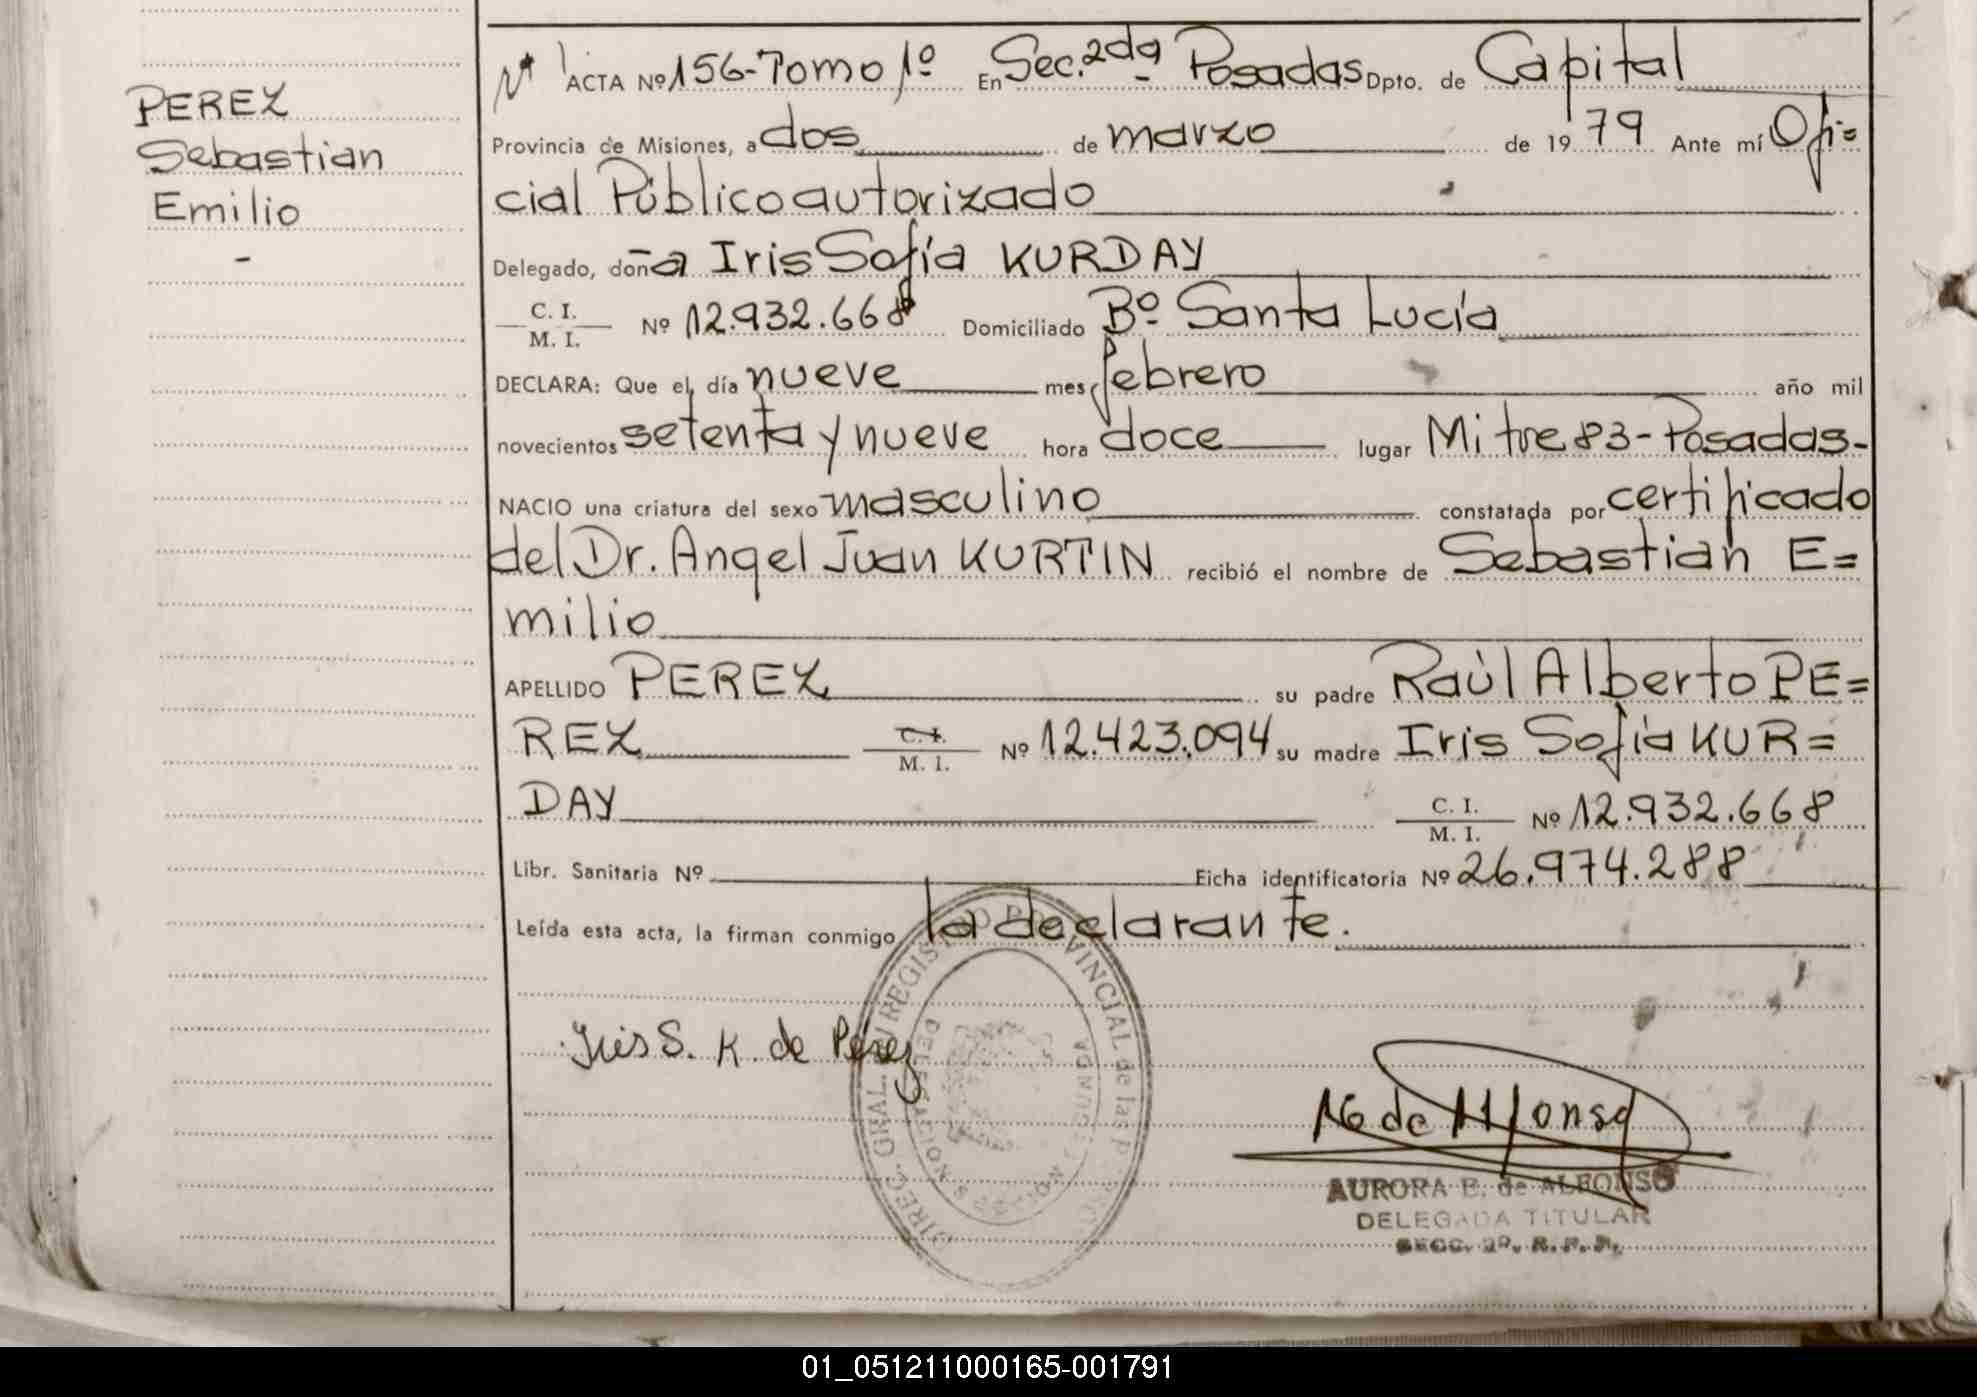 PEREZ
Sebastian
Emilio
-
ACTA Nº 156-Tomo 1º En Sec. 2da Posadas Dpto. de Capital
Provincia de Misiones, a dos de marzo de 1979 Ante mí Ofi=
cial Público autorizado
Delegado, doña Iris Sofía KURDAY
C. I.
M. I. Nº 12.932.668 Domiciliado Bº Santa Lucía
DECLARA: Que el día nueve mes febrero año mil
novecientos setenta y nueve hora doce lugar Mitre 83-Posadas-
NACIO una criatura del sexo masculino constatada por certificado
del Dr. Angel Juan KURTIN recibió el nombre de Sebastian E=
milio
APELLIDO PEREZ su padre Raúl Alberto PE=
REZ C. I. M. I. Nº 12.423.094 su madre Iris Sofía KUR=
DAY C. I. M. I. Nº 12.932.668
Libr. Sanitaria Nº Ficha identificatoria Nº 26.974.288
Leída esta acta, la firman conmigo la declarante.
Iris S. K. de Perez
DIREC. GRAL. REGISTRO PROVINCIAL de las P
DELEGACION SEGUNDA
MISIONES
de Alfonso
AURORA E. de ALFONSO
DELEGADA TITULAR
SECC. 2º. R. P. P.
01_051211000165-001791